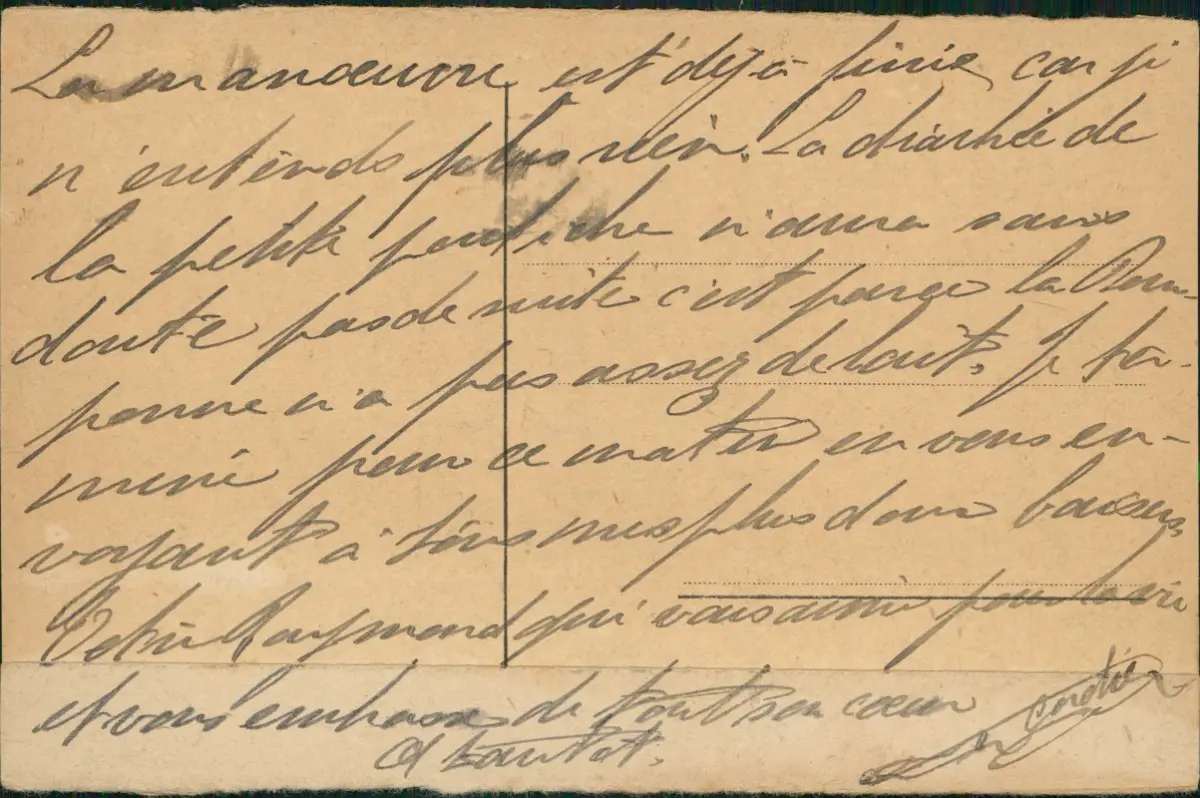 La manoeuvre est déjà finie, car je
n'entends plus rien. La diarhée de
la petite pouliche n'aura sans
doute pas de suite c'est parce la Pom-
ponne n'a pas assez de lait. Je ter-
mine pour ce matin en vous en-
voyant à tous mes plus doux baisers
Votre Raymond qui vous aime pour la vie
et vous embrasse de tout son coeur
A tantot.